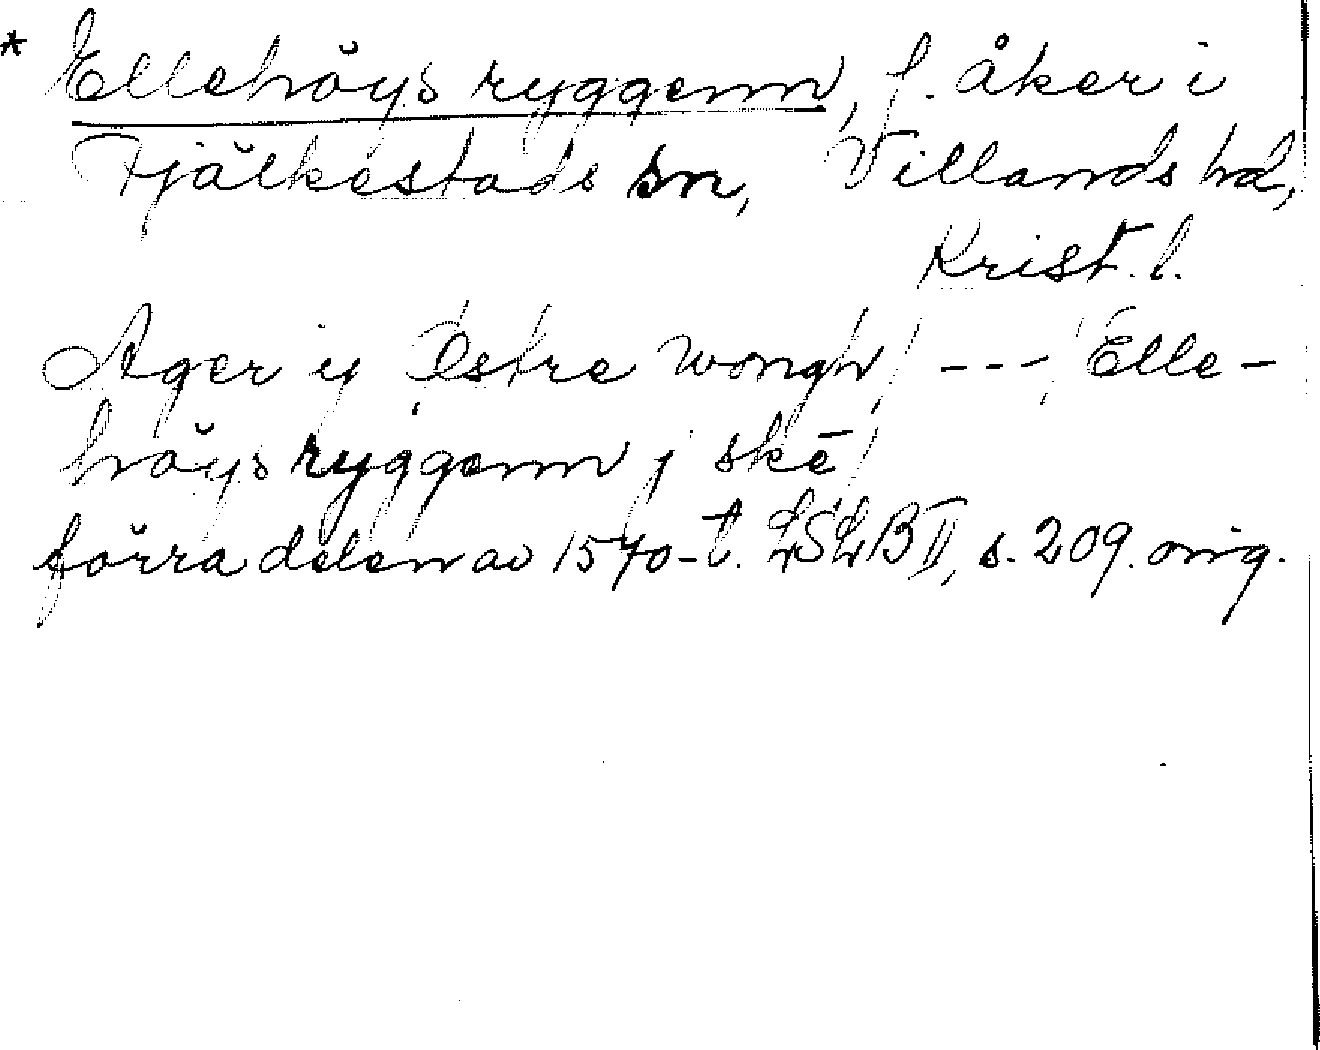 * Ellehöysryggenn, f. åker i
Fjälkestads sn, Villands hd,
Krist. l.
Ager ij Østre wongh / --- / Elle-
höysryggenn j skē /
förra delen av 1570-t. LSLB II, s. 209. orig.